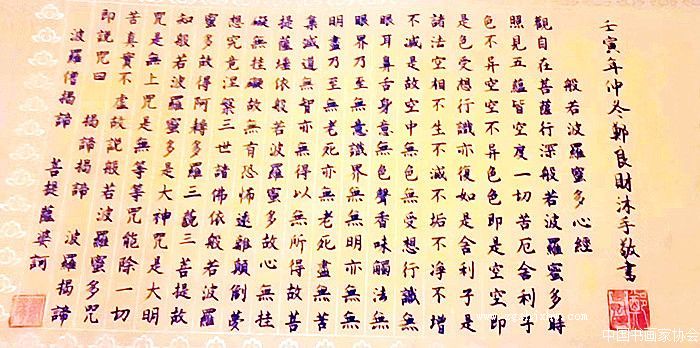 壬寅年仲冬鄭良財沐手敬書
般若波羅蜜多心經
觀自在菩薩行深般若波羅蜜多時
照見五蘊皆空度一切苦厄舍利子
色不异空空不异色色即是空空即
是色受想行識亦復如是舍利子是
諸法空相不生不滅不垢不净不增
不減是故空中無色無受想行識無
眼耳鼻舌身意無色聲香味觸法無
眼界乃至無意識界無無明亦無無
明盡乃至無老死亦無老死盡無苦
集滅道無智亦無得以無所得故菩
提薩埵依般若波羅蜜多故心無挂
礙無挂礙故無有恐怖遠離顛倒夢
想究竟涅槃三世諸佛依般若波羅
蜜多故得阿耨多羅三藐三菩提故
知般若波羅蜜多是大神咒是大明
咒是無上咒是無等等咒能除一切
苦真實不虛故説般若波羅蜜多咒
即説咒曰 揭諦揭諦 波羅揭諦
波羅僧揭諦 菩提薩婆訶
中国书画家协会